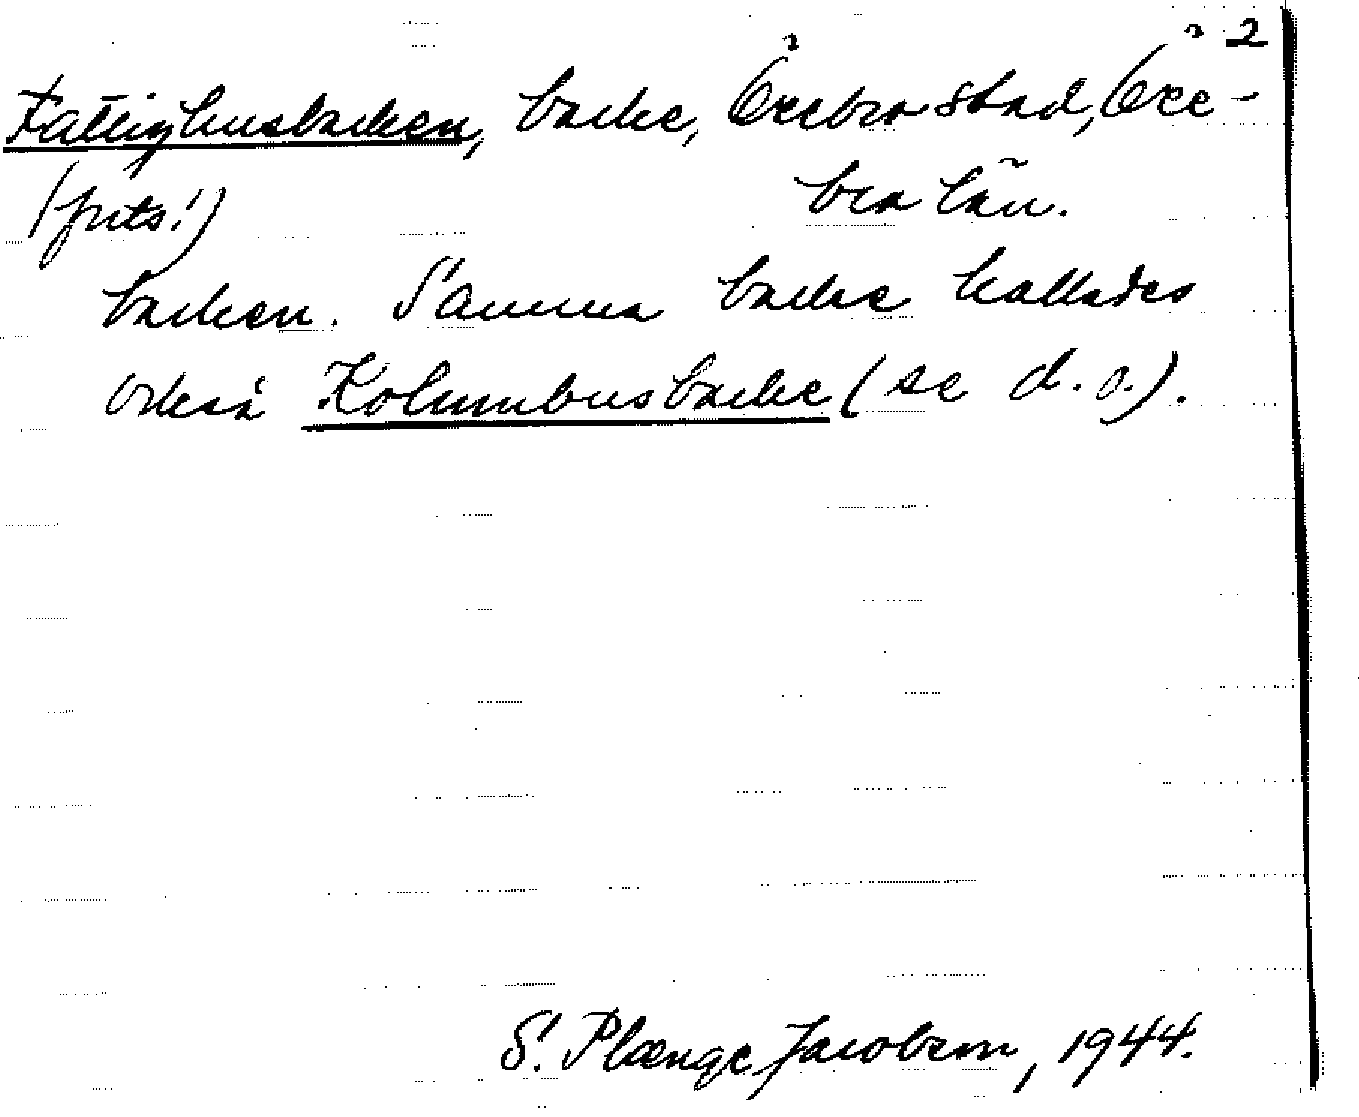 2
Fattighusbacken, backe, Örebro stad, Öre-
(forts.!) bro län.
backen. Samma backe kallades
också Kolumbusbacke (se d. o.).
S. Plænge Jacobson, 1944.